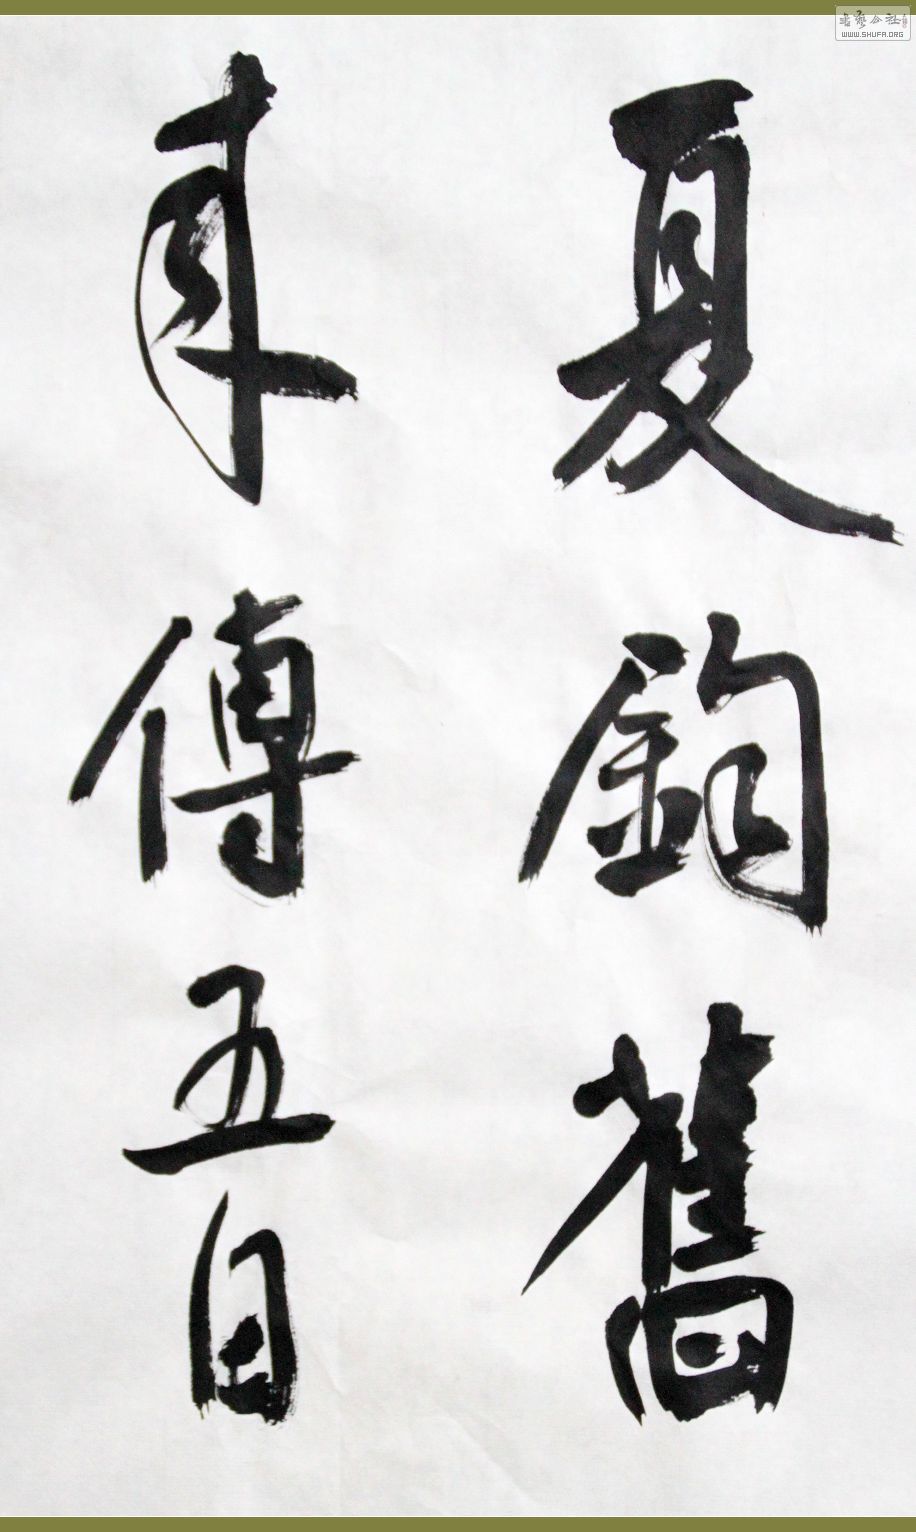 夏鈞舊
傳五日
書藝公社
WWW.SHUFA.ORG